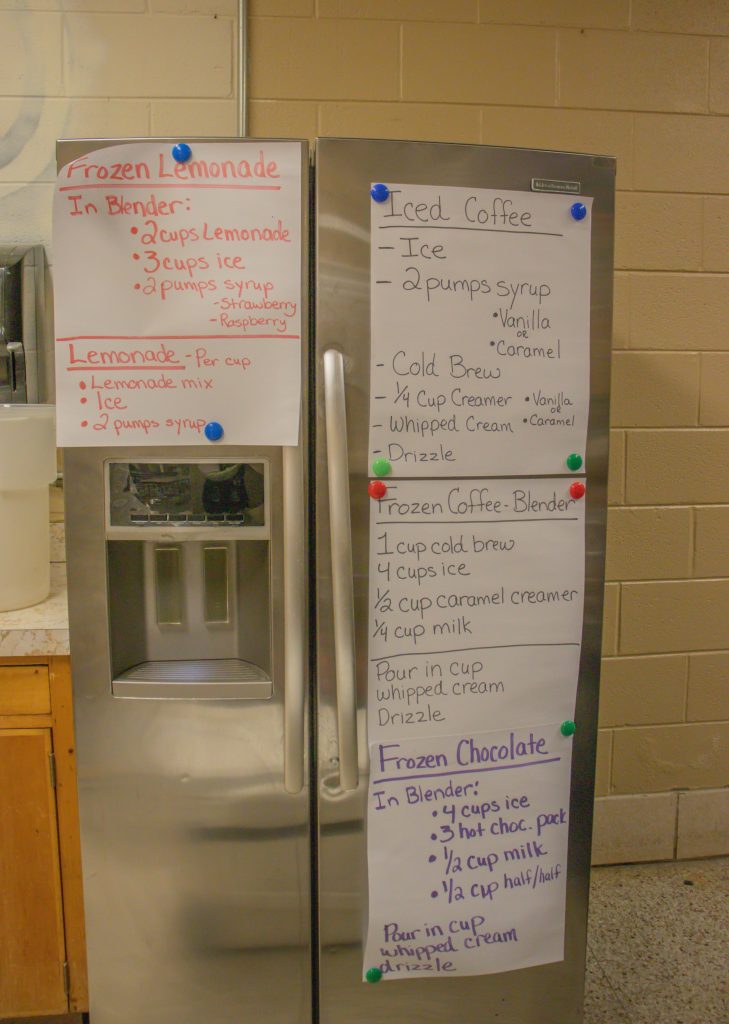 Frozen Lemonade
In Blender:
• 2 cups Lemonade
• 3 cups ice
• 2 pumps syrup
- Strawberry
- Raspberry
Lemonade - Per cup
• Lemonade mix
• Ice
• 2 pumps syrup
Iced Coffee
- Ice
- 2 pumps syrup
• Vanilla
OR
• Caramel
- Cold Brew
- 1/4 Cup Creamer • Vanilla
OR
- Whipped Cream • Caramel
- Drizzle
Frozen Coffee - Blender
1 cup cold brew
4 cups ice
1/2 cup caramel creamer
1/4 cup milk
Pour in cup
whipped cream
Drizzle
Frozen Chocolate
In Blender:
• 4 cups ice
• 3 hot choc. pack
• 1/2 cup milk
• 1/2 cup half/half
Pour in cup
whipped cream
drizzle